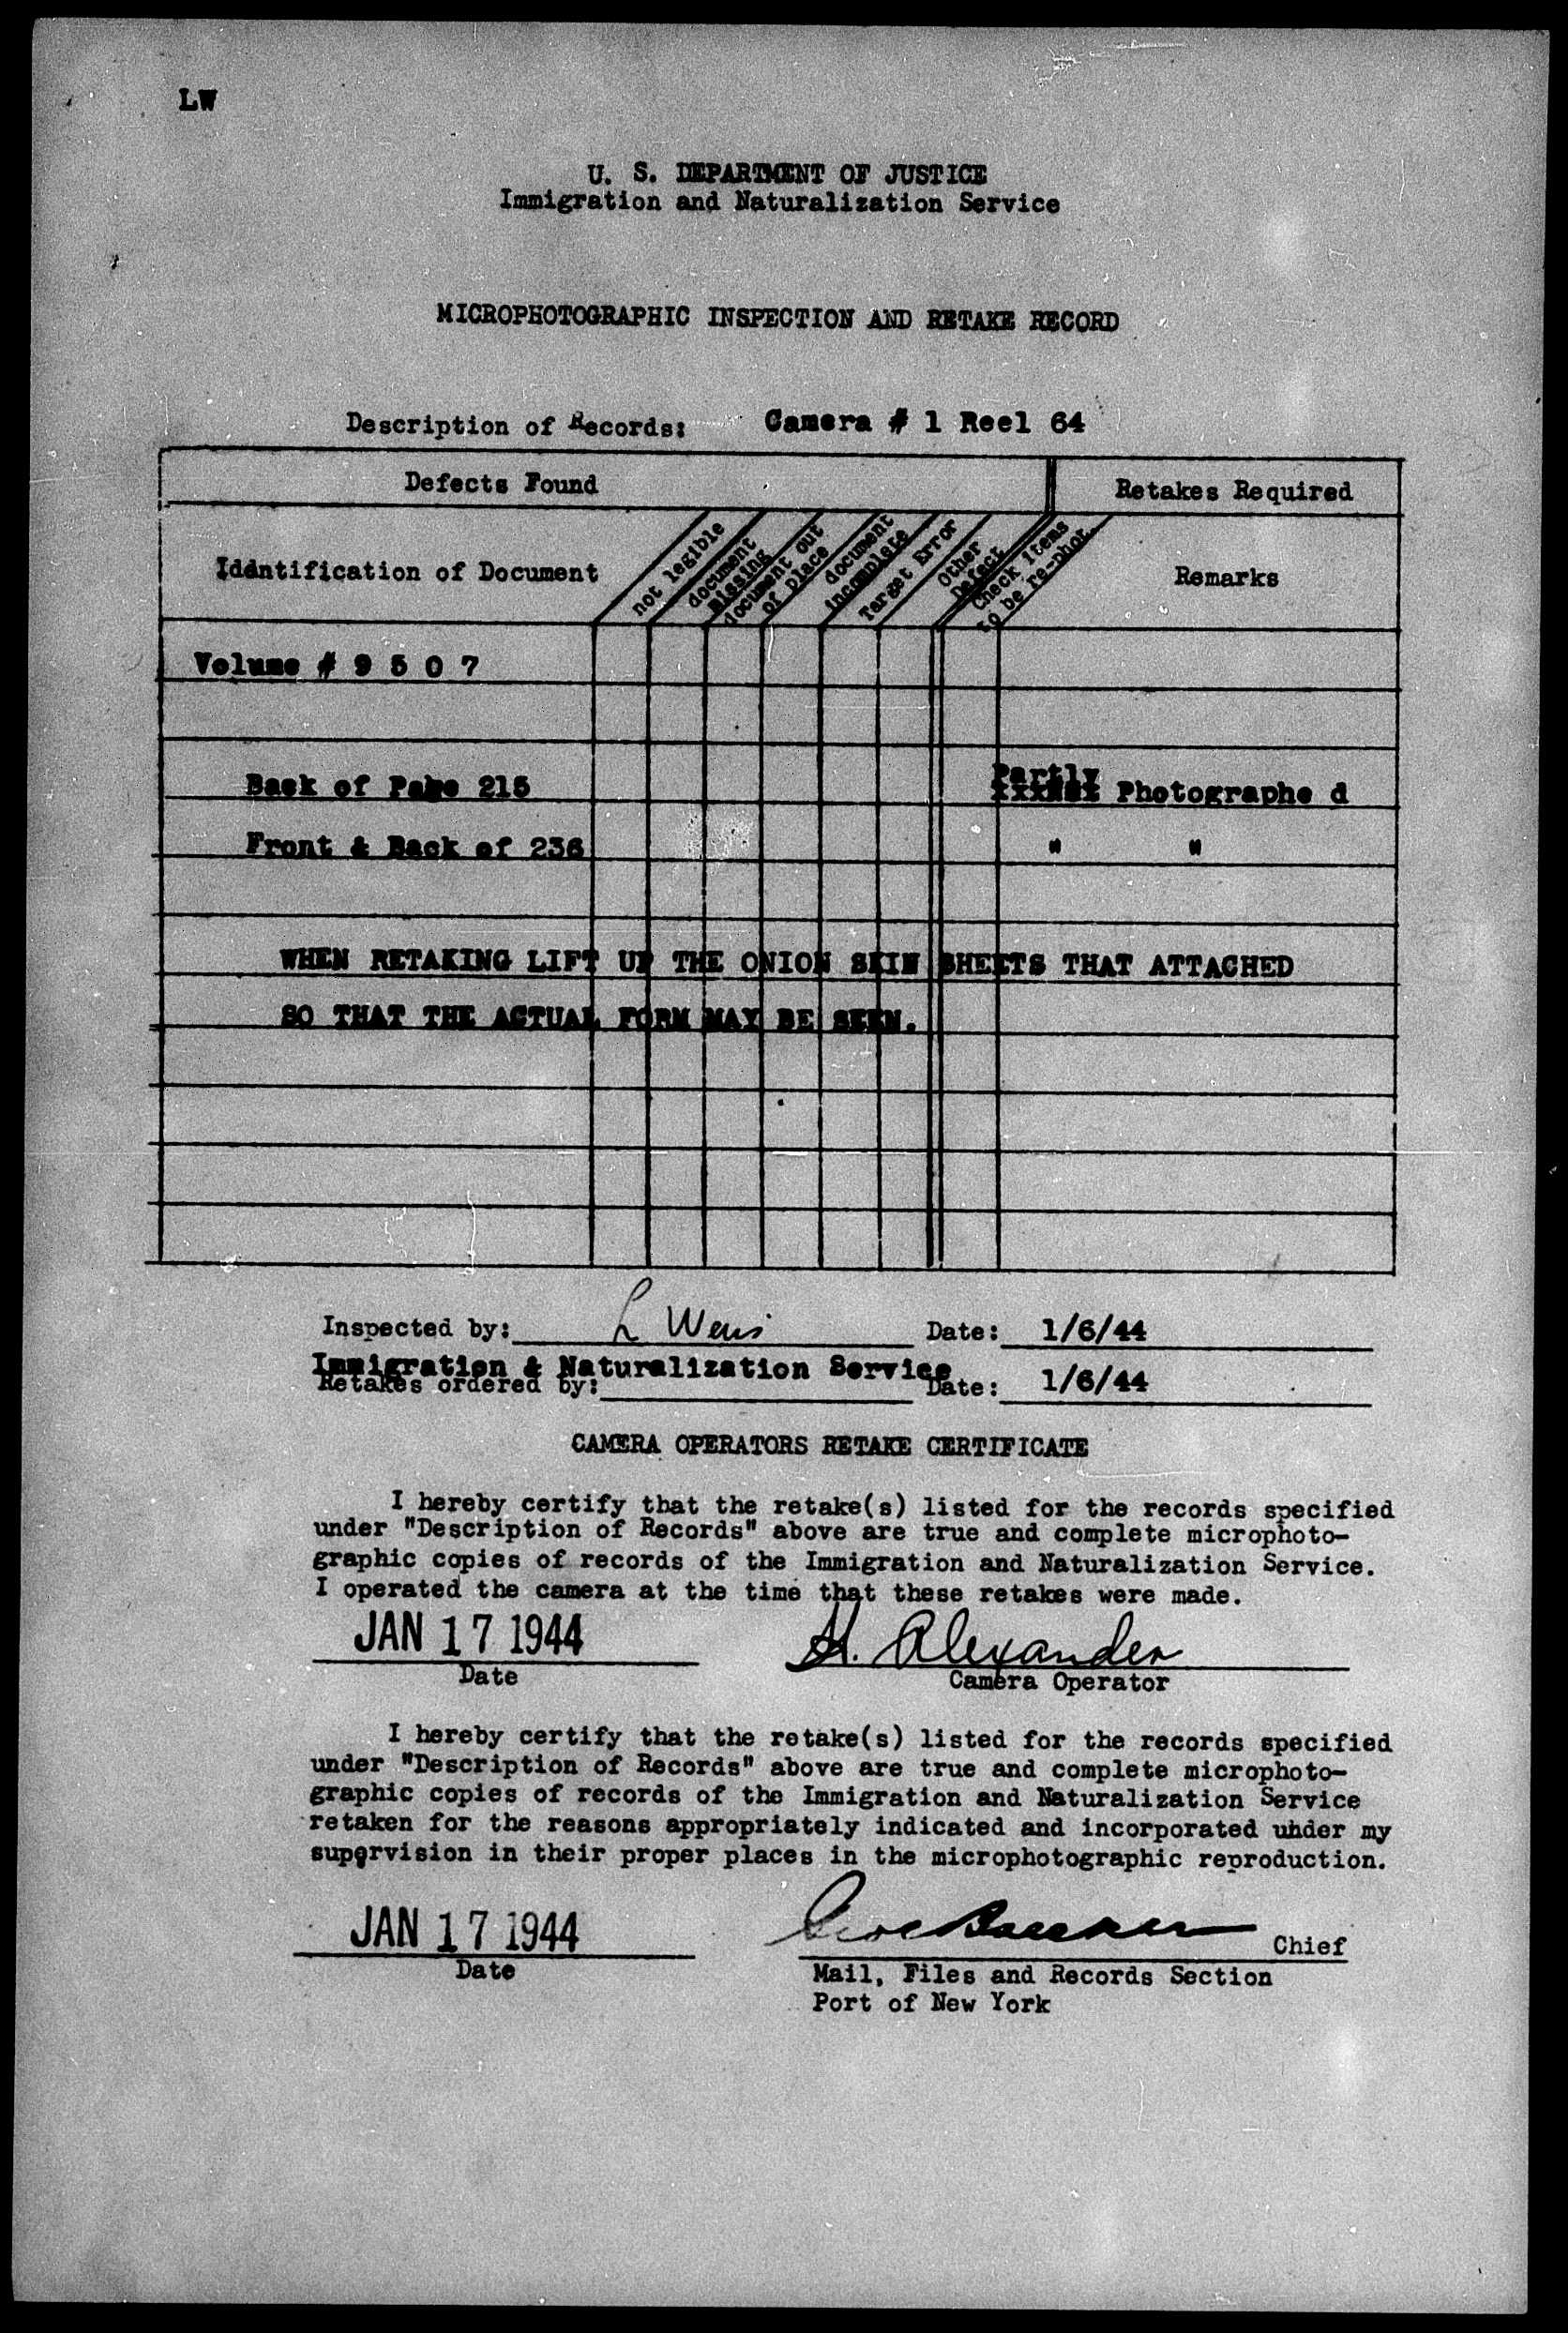 LW
U. S. DEPARTMENT OF JUSTICE
Immigration and Naturalization Service
MICROPHOTOGRAPHIC INSPECTION AND RETAKE RECORD
Description of Records: Camera # 1 Reel 64
Defects Found
Retakes Required
Identification of Document
not legible
document
missing
document out
of place
document
incomplete
Target Error
Other
Defect
Check items
to be re-phot.
Remarks
Volume # 9 5 0 7
Partly
Back of Page 215 Photographe d
Front & Back of 236 " "
WHEN RETAKING LIFT UP THE ONION SKIN SHEETS THAT ATTACHED
SO THAT THE ACTUAL FORM MAY BE SEEN.
Inspected by: L Date: 1/6/44
Immigration & Naturalization Service
Retakes ordered by: Date: 1/6/44
CAMERA OPERATORS RETAKE CERTIFICATE
I hereby certify that the retake(s) listed for the records specified
under "Description of Records" above are true and complete microphoto-
graphic copies of records of the Immigration and Naturalization Service.
I operated the camera at the time that these retakes were made.
JAN 17 1944 H. Alexander
Date Camera Operator
I hereby certify that the retake(s) listed for the records specified
under "Description of Records" above are true and complete microphoto-
graphic copies of records of the Immigration and Naturalization Service
retaken for the reasons appropriately indicated and incorporated under my
supervision in their proper places in the microphotographic reproduction.
JAN 17 1944 Chief
Date Mail, Files and Records Section
Port of New York